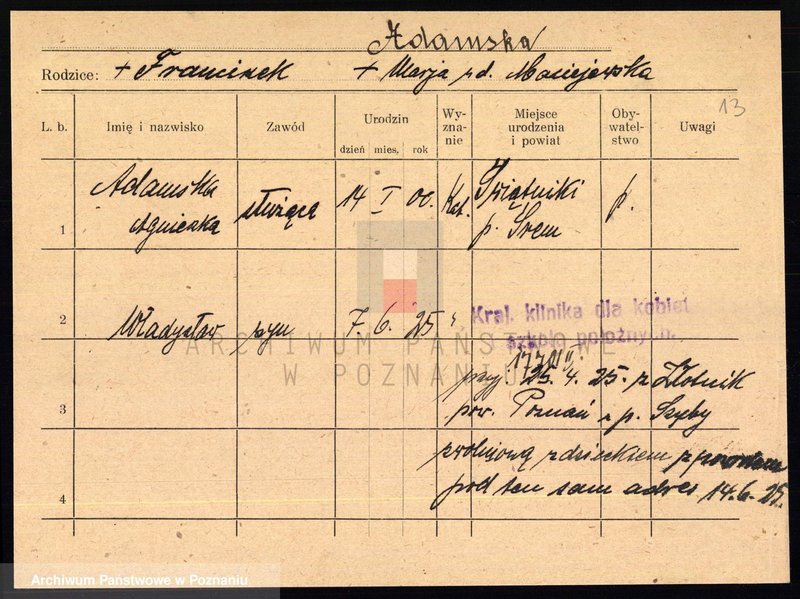 Adamska
Rodzice: + Franciszek + Marja z d. Maciejewska
13
L. b. Imię i nazwisko Zawód Urodzin dzień mies. rok Wyznanie Miejsce urodzenia i powiat Obywatelstwo Uwagi
1 Adamska Agnieszka służąca 14 I 00. Kat. Świątniki p. Śrem p.
2 Władysław syn 7. 6. 25 "
Kral. klinika dla kobiet
szkoła położnych.
ARCHIWUM PAŃSTWOWE
W POZNANIU
przy. 25. 4. 25. z Złotnik
3 pow. Poznań p. Szyby
z dzieckiem z powrotem
4 pod ten sam adres 14. 6. 25.
Archiwum Państwowe w Poznaniu